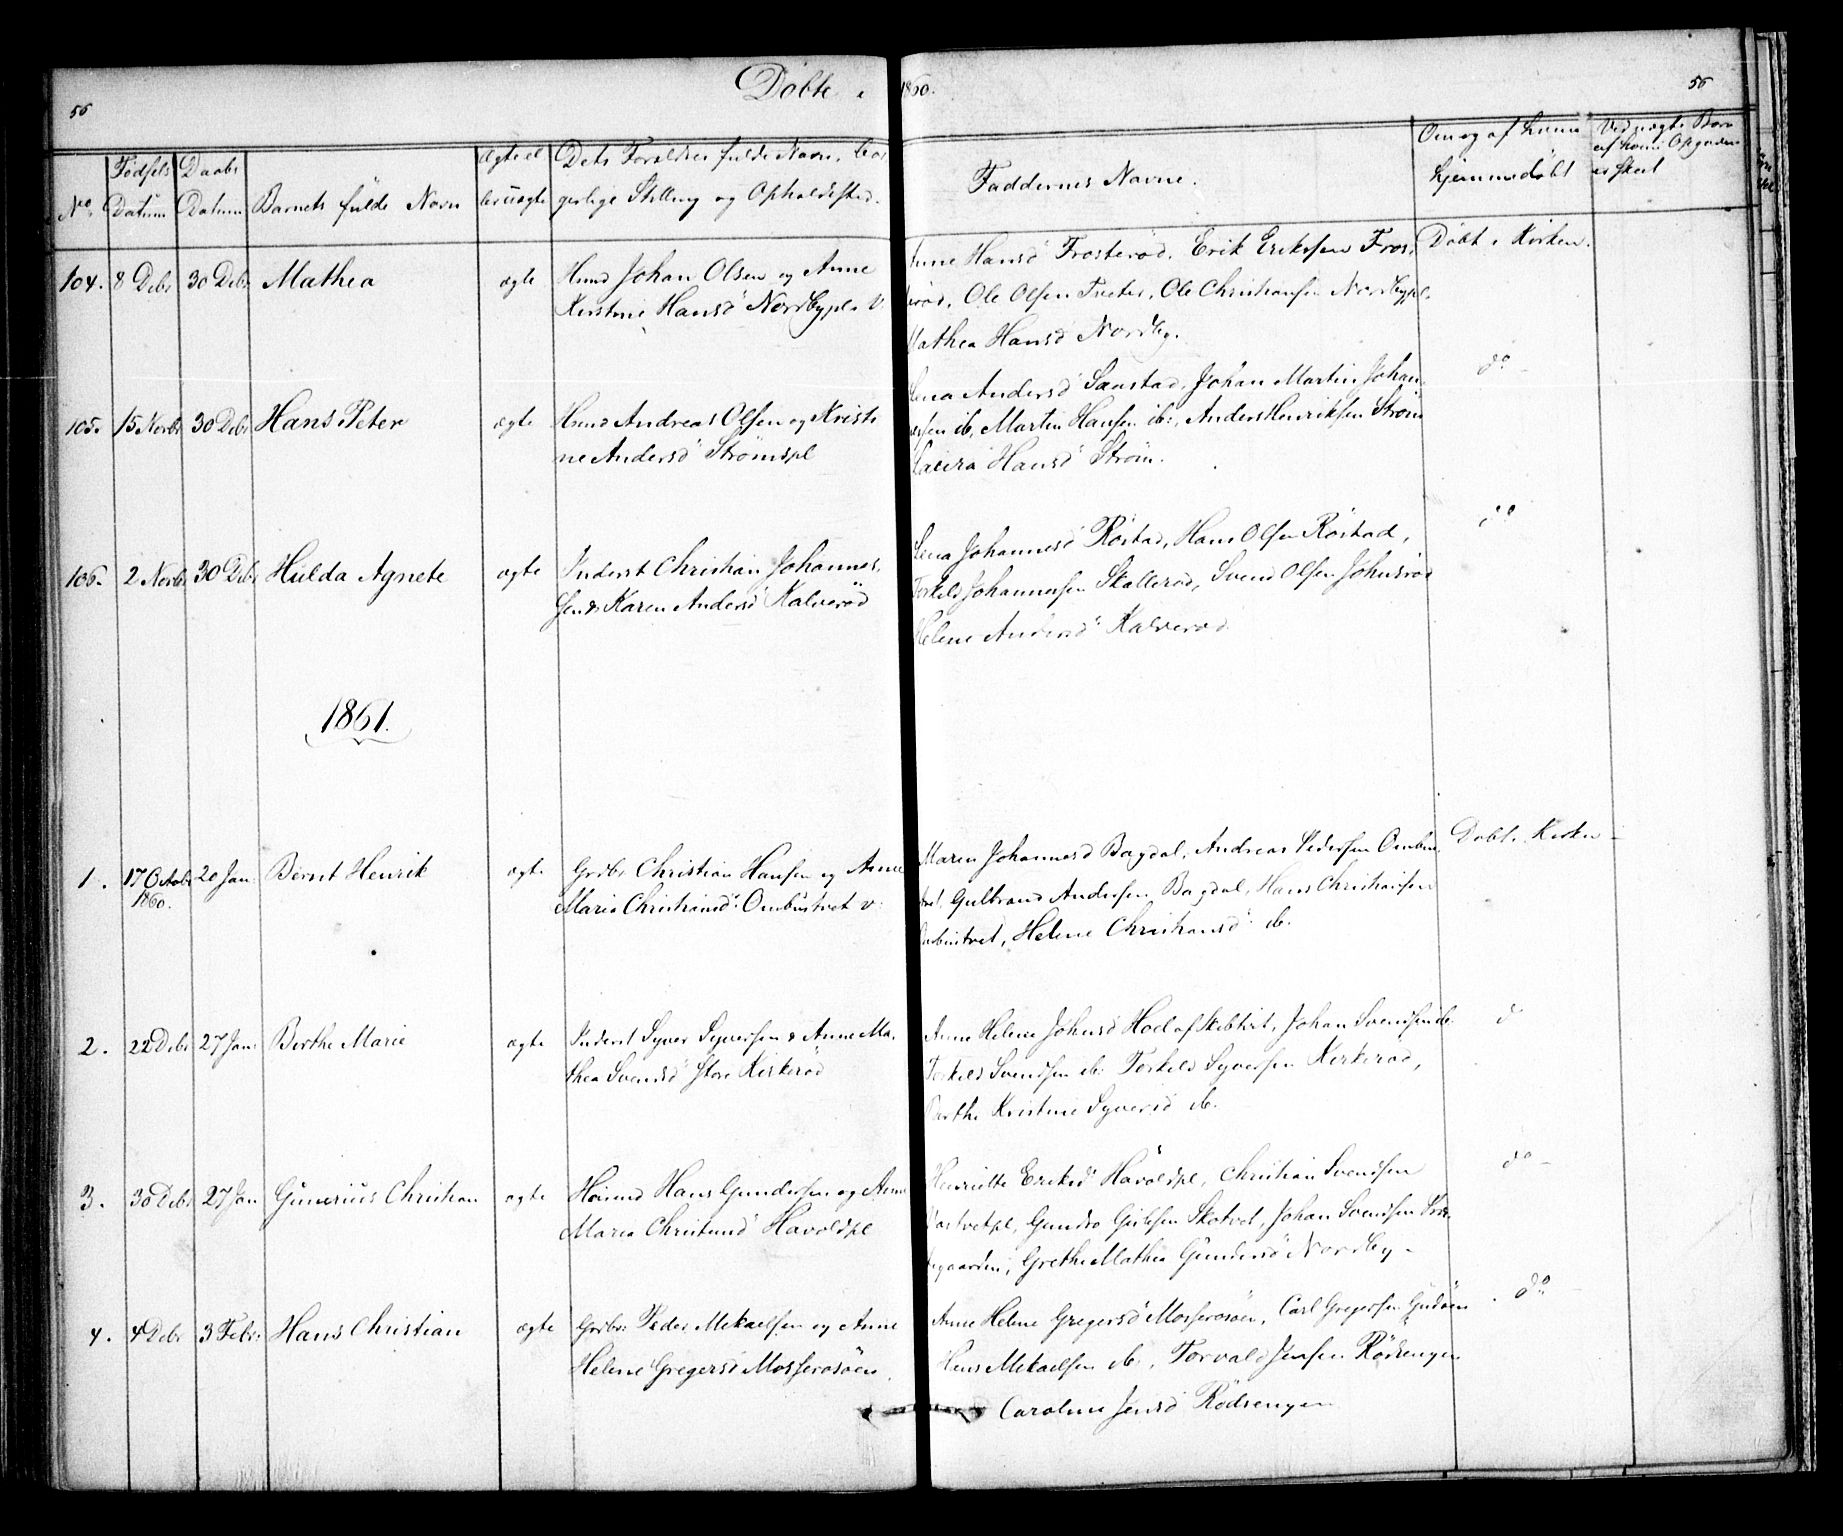 Døbte i 1860.
56
56
No.
Fødsels Datum
Daabs Datum
Barnets fulde Navn
Ægte el. uægte
Dets Forældres fulde Navn, borgerlige Stilling og Opholdssted.
Faddernes Navne.
Om og af hvem hjemmedøbt
Ved uægte Børn af hvem Opgaven er skeet
104. 8 Debr 30 Debr Mathea
ægte
Husmd Johan Olsen og Anne
Kirstine Hansd Nordbypl. V.
Anne Hansd Frosterød, Erik Eriksen Fros-
terød, Ole Olsen Tveter, Ole Christiansen Nordbypl.
Mathea Hansd Nordby.
Døbt i Kirken.
105. 15 Novbr 30 Debr Hans Peter
ægte
Husmd Andreas Olsen og Kristi
ne Andersd Strømspl
Lena Andersd Sanstad, Johan Martin Johan-
nesen ib, Martin Hansen ib:, Anders Henriksen Strøm
Hansd Strøm.
do
106. 2 Novbr 30 Debr Hulda Agnete
ægte
Inderst Christian Johannes-
sen & Karen Andersd Kalverød
Lena Johannesd Røstad, Hans Olsen Røstad,
Torkild Johannessen Skallerød, Svend Olsen Johnsrød
Helene Andersd Kalverød.
do
1861.
1. 17 Octobr 1860. 20 Jan. Bernt Henrik
ægte
Grdbr Christian Hansen og Anne
Maria Christiansd Ombustvet v:
Maren Johannesd Bagdal, Andreas Pedersen Ombus-
tvet, Gulbrand Andersen Bagdal, Hans Christiansen
Ombustvet, Helene Christiansd ib.
Døbt i Kirken
2. 22 Debr 27 Jan. Berthe Marie
ægte
Inderst Syver Syversen & Anne Ma-
thea Svendsd Store Kirkerød
Anne Helene Johnsd Hoel af Skibtvet, Johan Svendsen ib.
Torkild Svendsen ib. Torkild Syversen Kirkerød,
Berthe Kristine Syversd ib.
do
3. 30 Debr 27 Jan Gunerius Christian
ægte
Husmd Hans Gundersen og Anne
Maria Christiansd Havoldpl
Henriette Eriksd Havoldpl, Christian Svendsen
Gunder Skotvet, Johan Svendsen
Grethe Mathea Gundersd Nordby
do
4. 4 Debr 3 Febr. Hans Christian
ægte
Grdbr: Peder Mekaelsen og Anne
Helene Gregersd Mosserosøen
Anne Helene Gregersd Mosserosøen, Carl Gregersen Gudøen
Hans Mekaelsen ib., Torvald Jensen Rødsengen
Caroline Jensd Rødsengen
do